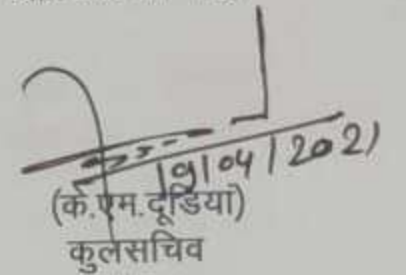 19/04/2021
(के.एम.दूडिया)
कुलसचिव